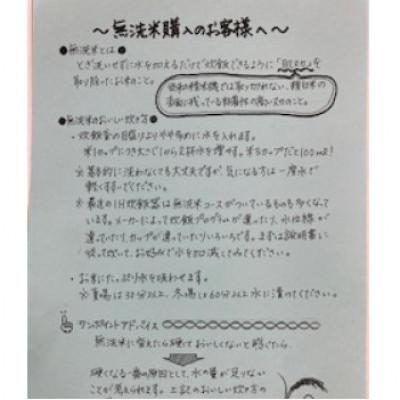 ～無洗米購入のお客様へ～
●無洗米とは●
とぎ洗いせずに水を加えるだけで炊飯できるように「肌ヌカ」を
取り除いたお米のこと。
従来の精米機では取りきれない、精白米の
表面に残っている粘着性の高いヌカのこと。
●無洗米のおいしい炊き方●
・炊飯釜の目盛りよりやや多めに水を入れます。
米1カップにつき大さじ1から2杯水を増やす。米5カップだと100ml!
※基本的に洗わなくても大丈夫ですが、気になる方は一度水で
軽くすすいでください。
※最近のIH炊飯器は無洗米コースがついているものも多くなって
います。メーカーによって炊飯プログラムが違ったり、水位線が
違っていたり、カップが違っていたりいろいろです。まずは説明書に
従って炊いて、お好みで水を加減してみてください。
・お米にたっぷり水を吸わせます。
※夏場は30分以上、冬場は60分以上水に漬けてください。
ワンポイントアドバイス
無洗米に替えたら硬くておいしくないと感じたら、
硬くなる一番の原因として、水の量が足りない
ことが考えられます。上記のおいしい炊き方の